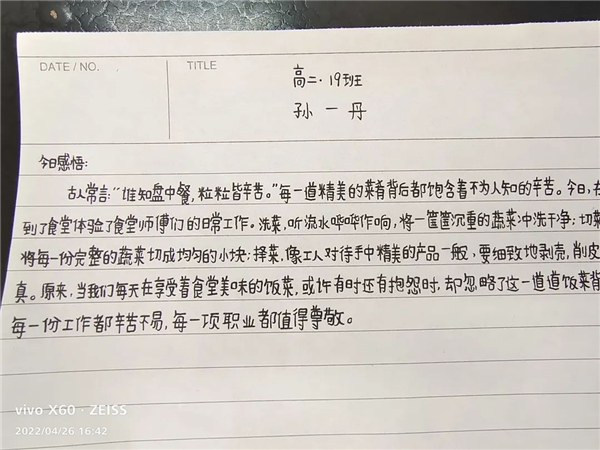 DATE / NO.
TITLE
高二·19班
孙一丹
今日感悟:
古人常言:“谁知盘中餐,粒粒皆辛苦。”每一道精美的菜肴背后都饱含着不为人知的辛苦。今日,在
到了食堂体验了食堂师傅们的日常工作。洗菜,听流水哗哗作响,将一筐筐沉重的蔬菜冲洗干净;切菜
将每一份完整的蔬菜切成均匀的小块;择菜,像工人对待手中精美的产品一般,要细致地剥壳,削皮
真。原来,当我们每天在享受着食堂美味的饭菜,或许有时还有抱怨时,却忽略了这一道道饭菜背
每一份工作都辛苦不易,每一项职业都值得尊敬。
vivo X60 · ZEISS
2022/04/26 16:42